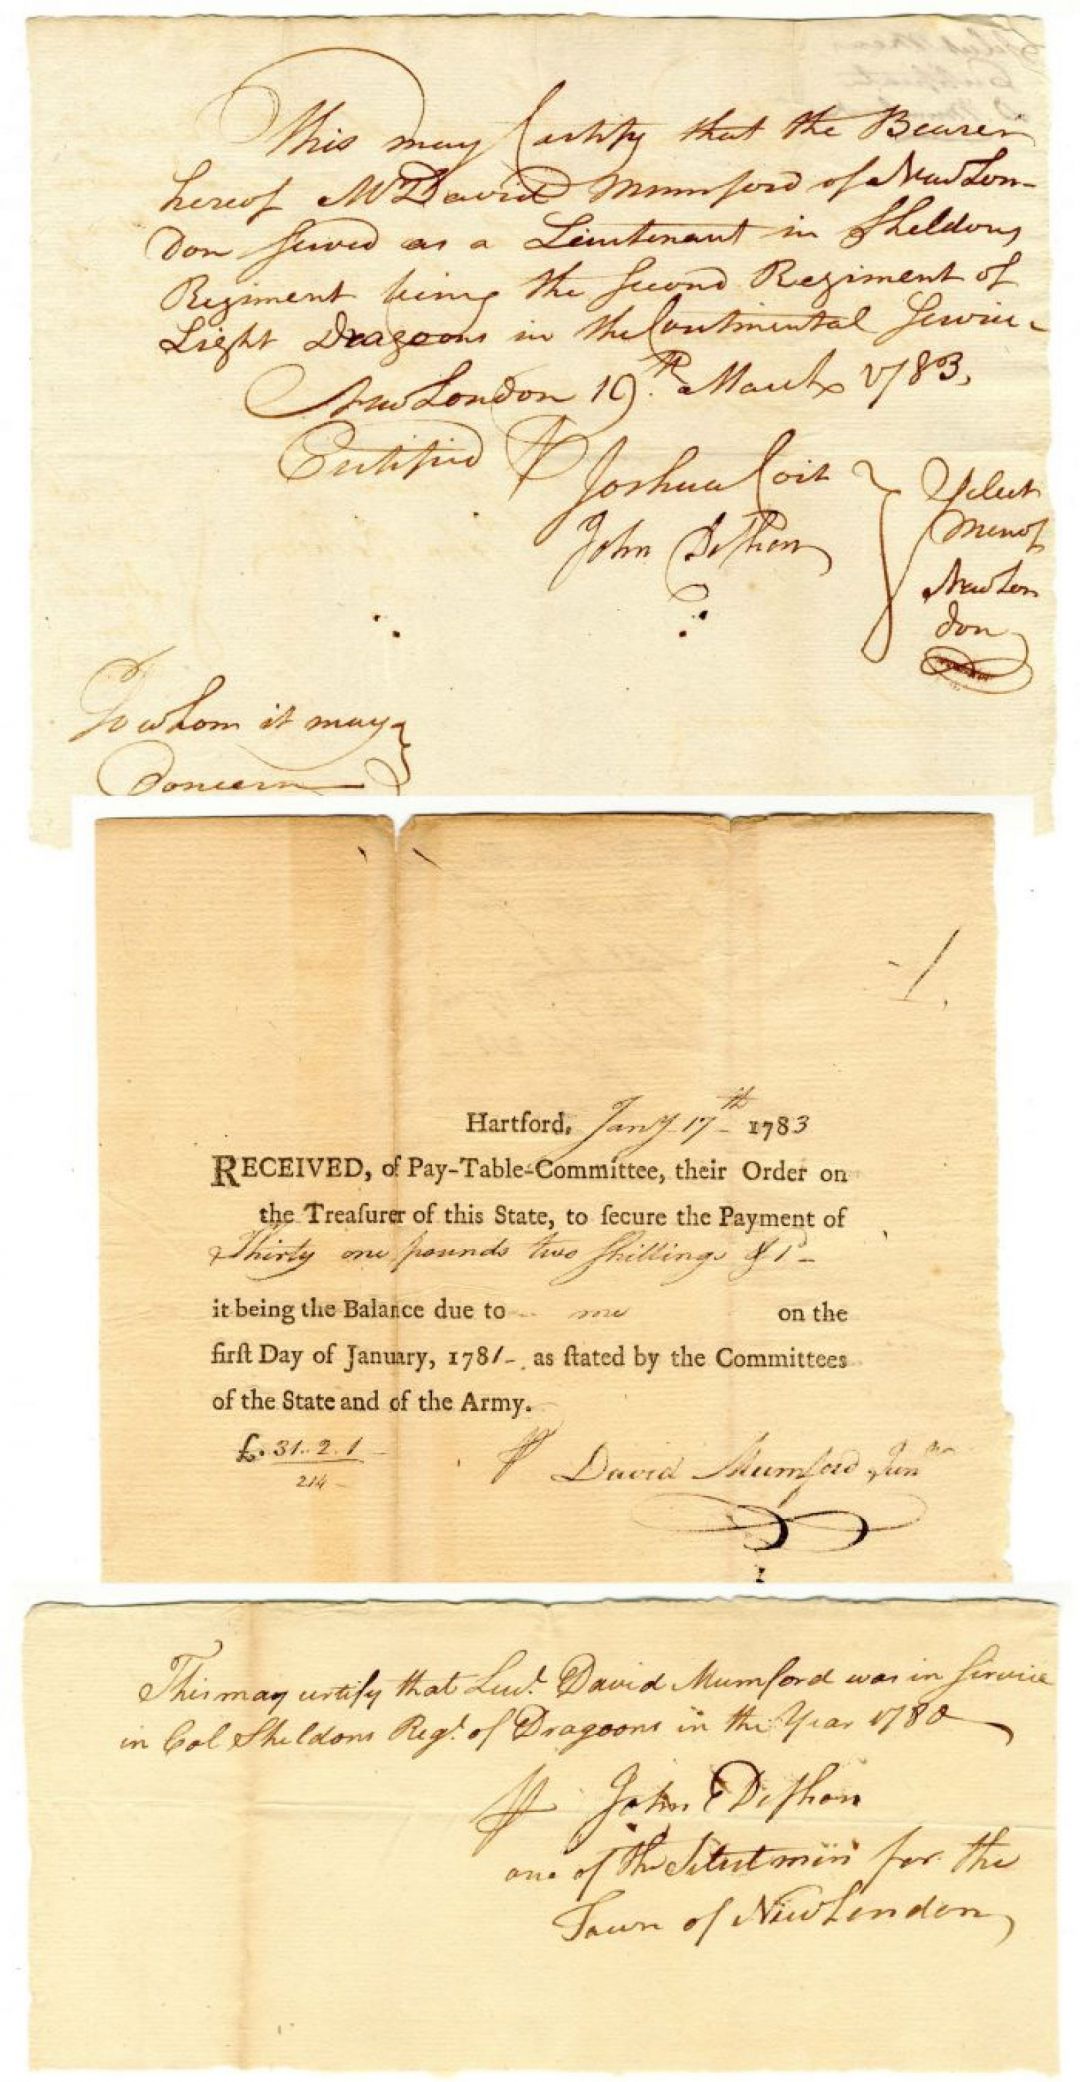 This may Certify that the Bearer
hereof Mr David Mumford of New Lon-
don Served as a Lieutenant in Sheldons
Regiment being the Second Regiment of
Light Dragoons in the Continental Service.
New London 19th. March 1783,
Certified
Joshua Coit
John DeShon
Select
Men of
New Lon
don
To whom it may
Concern
-/.
Hartford, Jany 17th 1783
RECEIVED, of Pay-Table-Committee, their Order on
the Treaſurer of this State, to ſecure the Payment of
Thirty one pounds two Shillings & 1d -
it being the Balance due to me on the
firſt Day of January, 1781- as ſtated by the Committees
of the State and of the Army.
£. 31..2.1
214 -
David Mumford Junr
This may certify that Lieut. David Mumford was in Service
in Col Sheldons Regt. of Dragoons in the Year 1780
John DeShon
one of the Selectmen for the
Town of New London